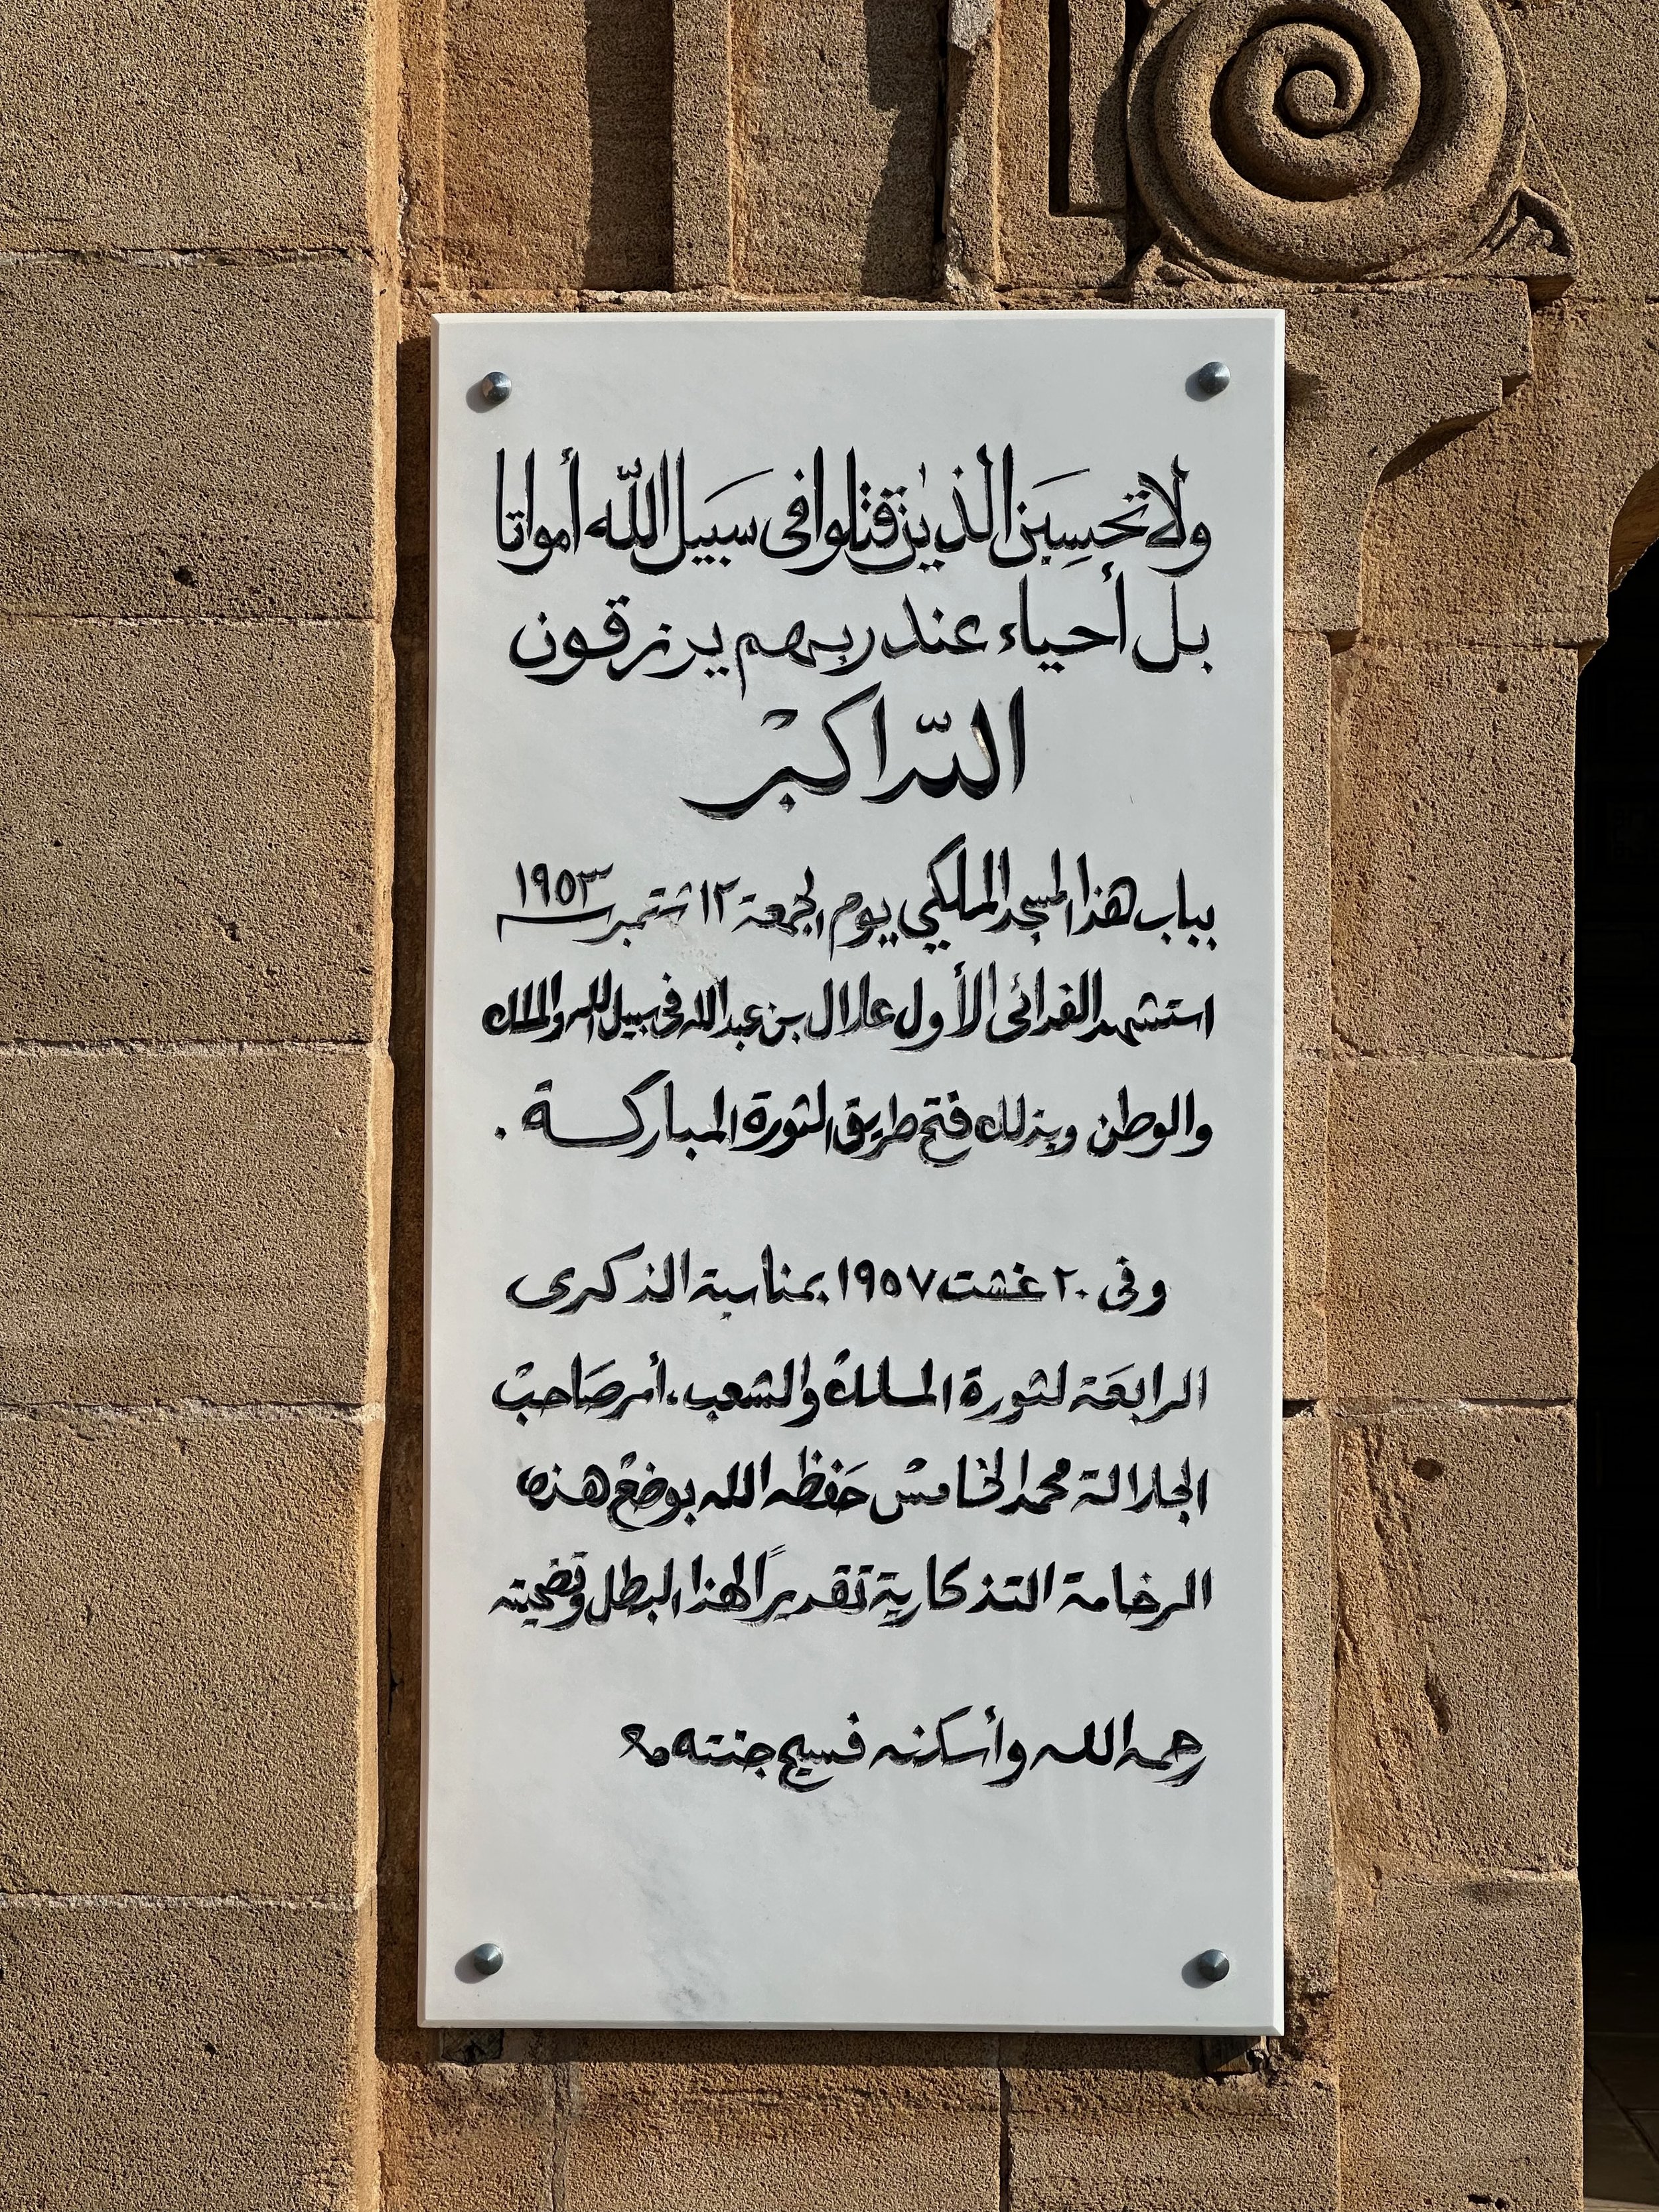 ولا تحسِبَن الذين قتلوا فى سبَيل اللّه أمواتا
بل أحياء عند ربهم يرزقون
اللّه اكبر
بباب هذا المسجد الملكي يوم الجمعة ١٢ شتمبر سنة ١٩٥٣
استشهد الفدائى الأول علال بن عبد الله فى سبيل الله والملك
والوطن وبذلك فتح طريق الثورة المباركة .
وفى ٢٠ غشت ١٩٥٧ بمناسبة الذكرى
الرابعَة لثورة الملك والشعب، أمر صَاحب
الجلالة محمد الخامس حَفظه الله بوضع هذه
الرخامة التذكارية تقديرًا لهذا البطل وتضحيته
رحمه الله وأسكنه فسيح جنته